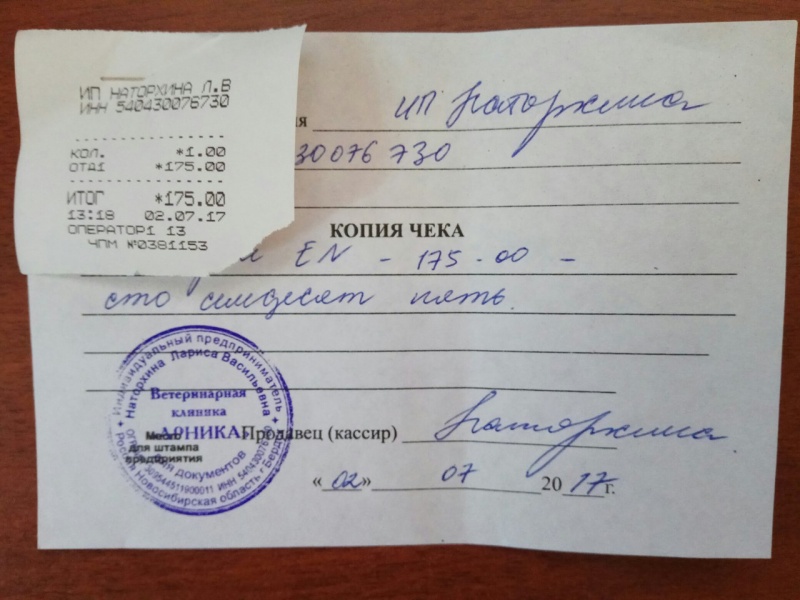 ИП НАТОРХИНА Л.В
ИНН 540430076730
КОЛ. *1.00
ОТД1 *175.00
ИТОГ *175.00
13:18 02.07.17
ОПЕРАТОР1 13
ЧПМ №0381153
ия ИП Наторхина
30076 730
КОПИЯ ЧЕКА
EN - 175-00 -
сто семдесят пять
Индивидуальный предприниматель
Наторхина Лариса Васильевна
Ветеринарная
клиника
"АРНИКА"
Место
для штампа
предприятия
документов
Россия Новосибирская область г Бердск
Продавец (кассир) Наторхина
«02» 07 2017г.